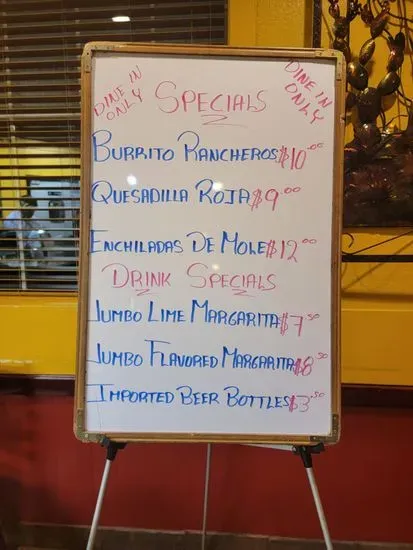 DINE IN ONLY
SPECIALS
DINE IN ONLY
BURRITO RANCHEROS $10.00
QUESADILLA ROJA $9.00
ENCHILADAS DE MOLE $12.00
DRINK SPECIALS
JUMBO LIME MARGARITA $7.50
JUMBO FLAVORED MARGARITA $8.50
IMPORTED BEER BOTTLES $3.50